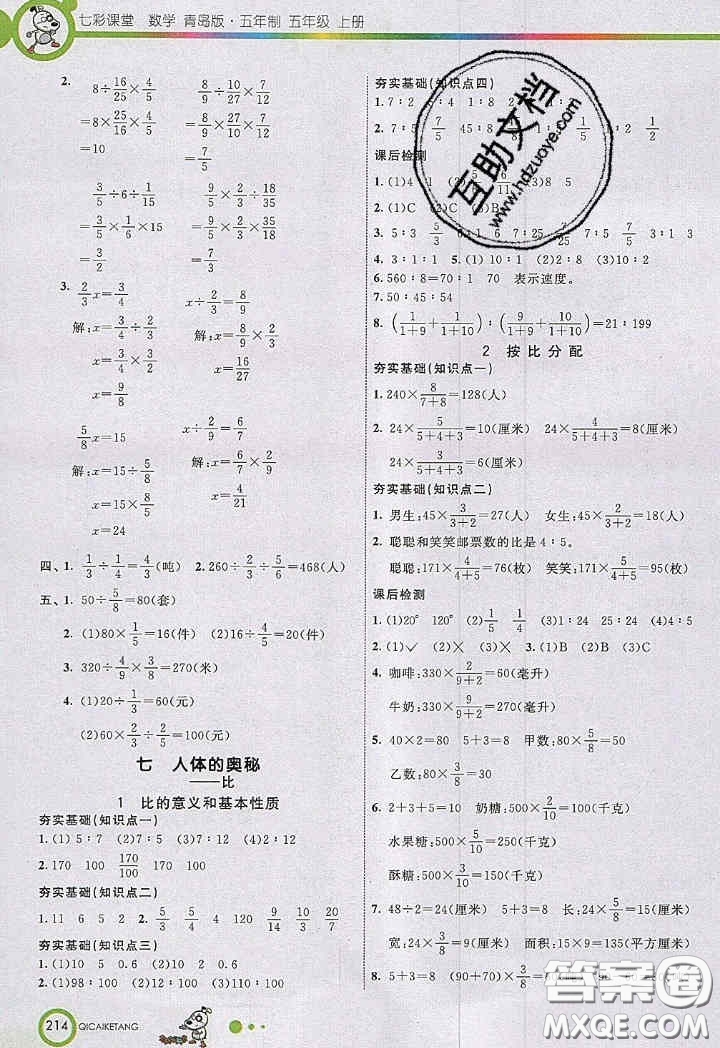 七彩课堂 数学 青岛版·五年制 五年级 上册
2. 8÷16/25×4/5
=8×25/16×4/5
=10
8/9÷10/27×7/12
=8/9×27/10×7/12
=7/5
35/3÷6÷1/15
=35/3×1/6×15
3. 2/3x=3/4
解:x=3/4÷2/3
x=3/4×3/2
x=9/8
x÷2/3=8/9
解:x=8/9×2/3
x=16/27
5/8x=15
解:x=15÷5/8
x=15×8/5
x=24
x÷2/9=6/7
解:x=6/7×2/9
x=4/21
四、1. 1/3÷1/4=4/3(吨) 2. 260÷2/3÷5/6=468(人)
五、1. 50÷5/8=80(套)
2. (1)80×1/5=16(件) (2)16÷4/5=20(件)
3. 320÷4/9×3/8=270(米)
4. (1)20÷1/3=60(元)
(2)60×2/3÷2/5=100(元)
七 人体的奥秘
——比
1 比的意义和基本性质
夯实基础(知识点一)
1. (1)5∶7 (2)7∶5 (3)7∶12 (4)2∶12
2. 170 100 170/100 170÷100
夯实基础(知识点二)
1. 11 6 5 2. 5/3 5/4 4 120 9/14 10/3 20/7
夯实基础(知识点三)
1. (1)10 5 0.6 (2)10 15 0.6
2. (1)98 100 (2)98÷100
214 QICAIKETANG
夯实基础(知识点四)
1. 7∶2 4∶1 1∶8
2. 7∶5 7/5 45∶8 1∶2 1/2
课后检测
1. (1)4 1 (3)8 5
2. (1)C (2)C (3)B
3. 5∶3 5/3 6∶1 6 7∶25 7/25 3∶1 3
4. (1)10∶1 5. (1)10∶1 (2)8∶1 (3)10∶1
6. 560∶8=70∶1 70 表示速度。
7. 50∶45∶54
8. (1/1+9+1/1+10)∶(9/1+9+10/1+10)=21∶199
2 按比分配
夯实基础(知识点一)
1. 240×8/7+8=128(人)
2. 24×5/5+4+3=10(厘米) 24×4/5+4+3=8(厘米)
24×3/5+4+3=6(厘米)
夯实基础(知识点二)
1. 男生:45×3/3+2=27(人) 女生:45×2/3+2=18(人)
2. 聪聪和笑笑邮票数的比是4∶5。
聪聪:171×4/4+5=76(枚) 笑笑:171×5/4+5=95(枚)
课后检测
1. (1)20° 120° (2)1/5 1/4 (3)1∶24 25∶24 (4)5
2. (1)✓ (2)× (3)× 3. (1)B (2)B (3)C
4. 咖啡:330×2/9+2=60(毫升)
牛奶:330×9/9+2=270(毫升)
5. 40×2=80 5+3=8 甲数:80×5/8=50
乙数:80×3/8=30
6. 2+3+5=10 奶糖:500×2/10=100(千克)
水果糖:500×5/10=250(千克)
酥糖:500×3/10=150(千克)
7. 48÷2=24(厘米) 5+3=8 长:24×5/8=15(厘米)
宽:24×3/8=9(厘米) 面积:15×9=135(平方厘米)
8. 5+3=8 (90+70)×3/8
互助文档
www.hdzuoye.com
答案圈
MXQE.COM